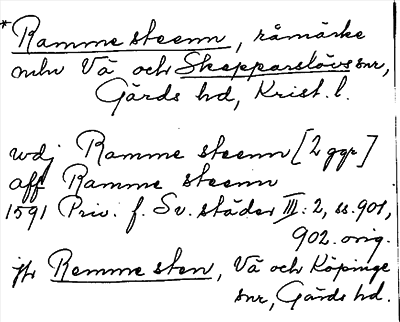 *Ramme steenn, råmärke
mln Vä och Skepparslövs snr,
Gärds hd, Krist. l.
wdj Ramme steenn [2 ggr]
aff Ramme steenn
1591 Priv. f. Sv. städer III: 2, ss. 901,
902. orig.
jfr Remmesten, Vä och Köpinge
snr, Gärds hd.